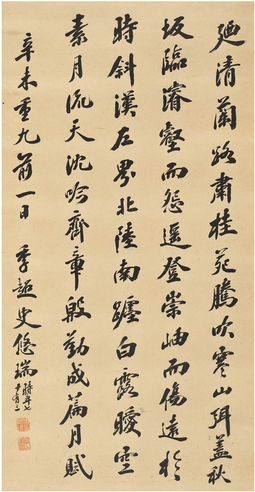 廼清蘭路肅桂苑騰吹寒山弭蓋秋
坂臨濬壑而怨遥登崇岫而傷遠於
時斜漢左界北陸南躔白露曖空
素月流天沈吟齊章殷勤成篇月賦
辛未重九前一日 季超史悠瑞
時年七
十有